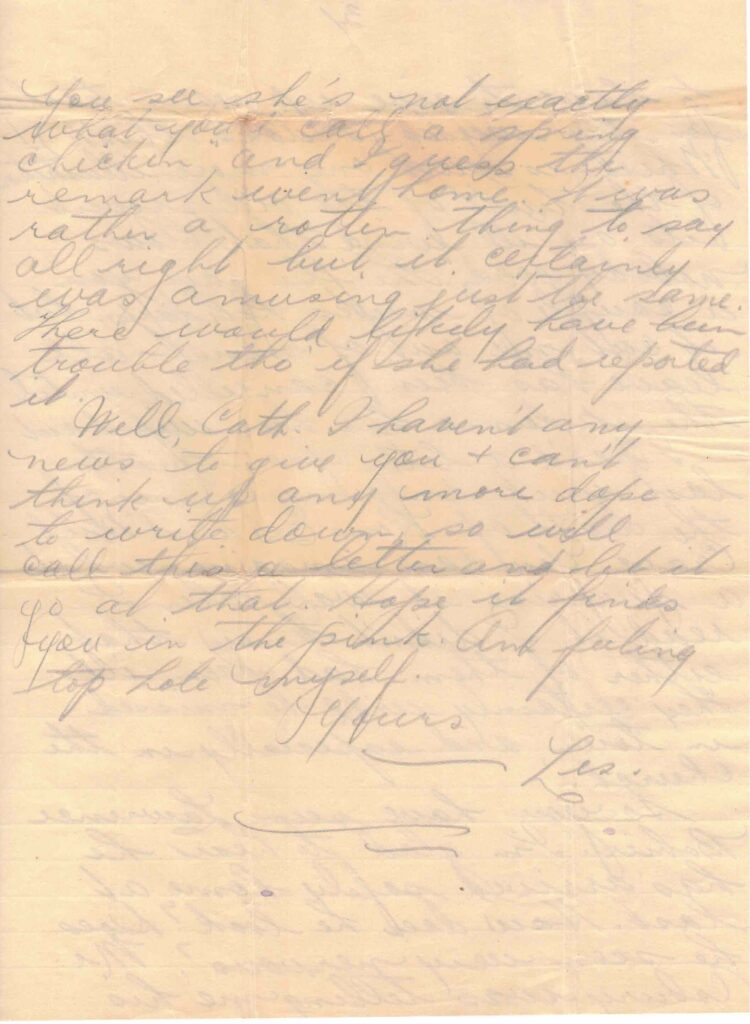 You see she's not exactly
what you'd call a "spring
chicken" and I guess the
remark went home. It was
rather a rotten thing to say
all right but it certainly
was amusing just the same.
There would likely have been
trouble tho' if she had reported
it.
Well, Cath. I haven't any
news to give you + can't
think up any more dope
to write down, so will
call this a letter and let it
go at that. Hope it finds
you in the pink. Am feeling
top hole myself.
Yours
Les.